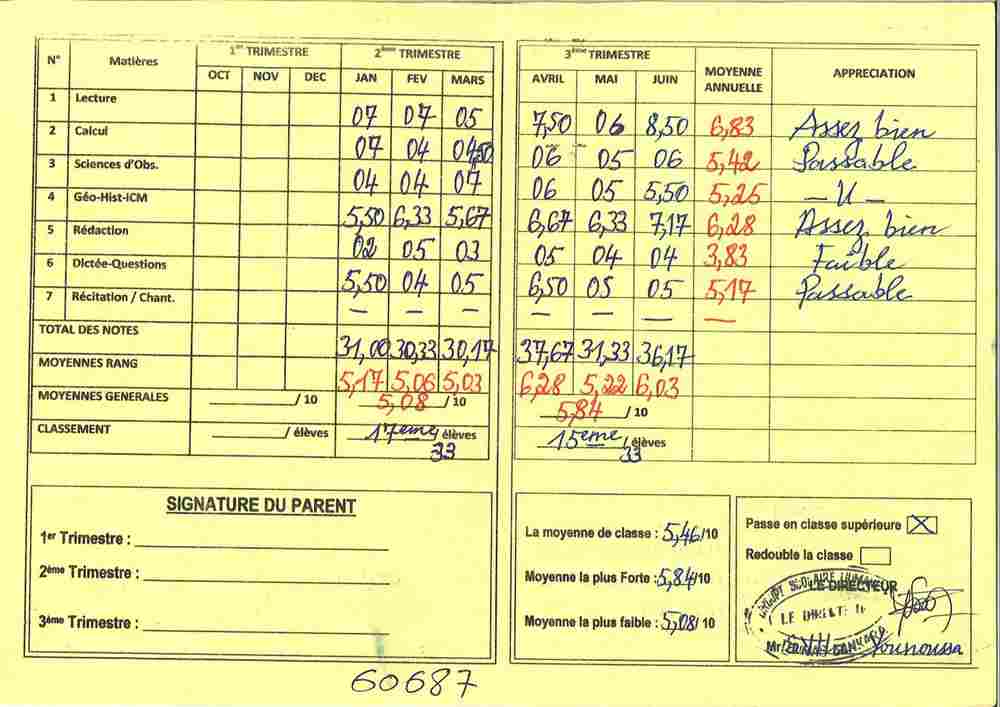 N° Matières 1er TRIMESTRE 2ème TRIMESTRE
OCT NOV DEC JAN FEV MARS
1 Lecture 07 07 05
2 Calcul 07 04 04,50
3 Sciences d'Obs. 04 04 07
4 Géo-Hist-iCM 5,50 6,33 5,67
5 Rédaction 02 05 03
6 Dictée-Questions 5,50 04 05
7 Récitation / Chant. — — —
TOTAL DES NOTES 31,00 30,33 30,17
MOYENNES RANG 5,17 5,06 5,03
MOYENNES GENERALES ________/ 10 5,08 / 10
CLASSEMENT ________/ élèves 17eme/ élèves
33
3ème TRIMESTRE MOYENNE ANNUELLE APPRECIATION
AVRIL MAI JUIN
7,50 06 8,50 6,83 Assez bien
06 05 06 5,42 Passable
06 05 5,50 5,25 — // —
6,67 6,33 7,17 6,28 Assez bien
05 04 04 3,83 Faible
6,50 05 05 5,17 Passable
— — — —
37,67 31,33 36,17
6,28 5,22 6,03
5,84 / 10
15eme / élèves
33
SIGNATURE DU PARENT
1er Trimestre : ________
2ème Trimestre : ________
3éme Trimestre : ________
La moyenne de classe : 5,46/10
Moyenne la plus Forte : 5,84/10
Moyenne la plus faible : 5,08/ 10
Passe en classe supérieure X
Redouble la classe
LE DIRECTEUR
LE DIRECTE
Mr Younoussa
60687